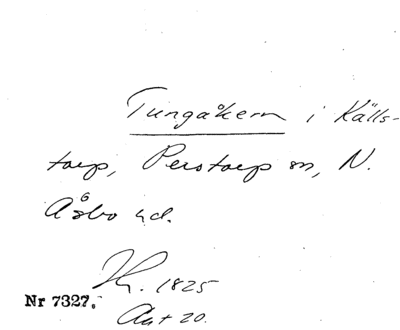 Tungåkern i Källs-
torp, Perstorp sn, N.
Åsbo hd.
Kr. 1825
Nr 7327.
Akt 20.